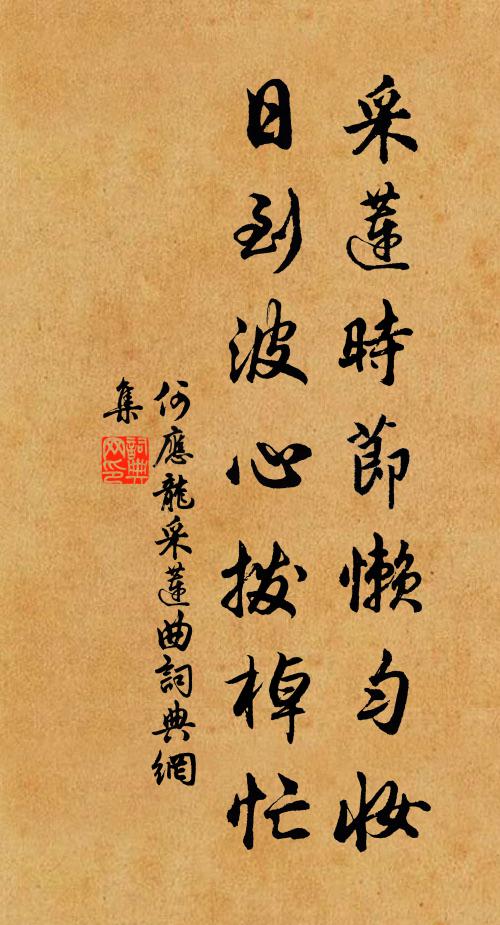 采蓮時節懶勻妝
日到波心撥棹忙
何應龍采蓮曲詞典網
集
詞典
网印